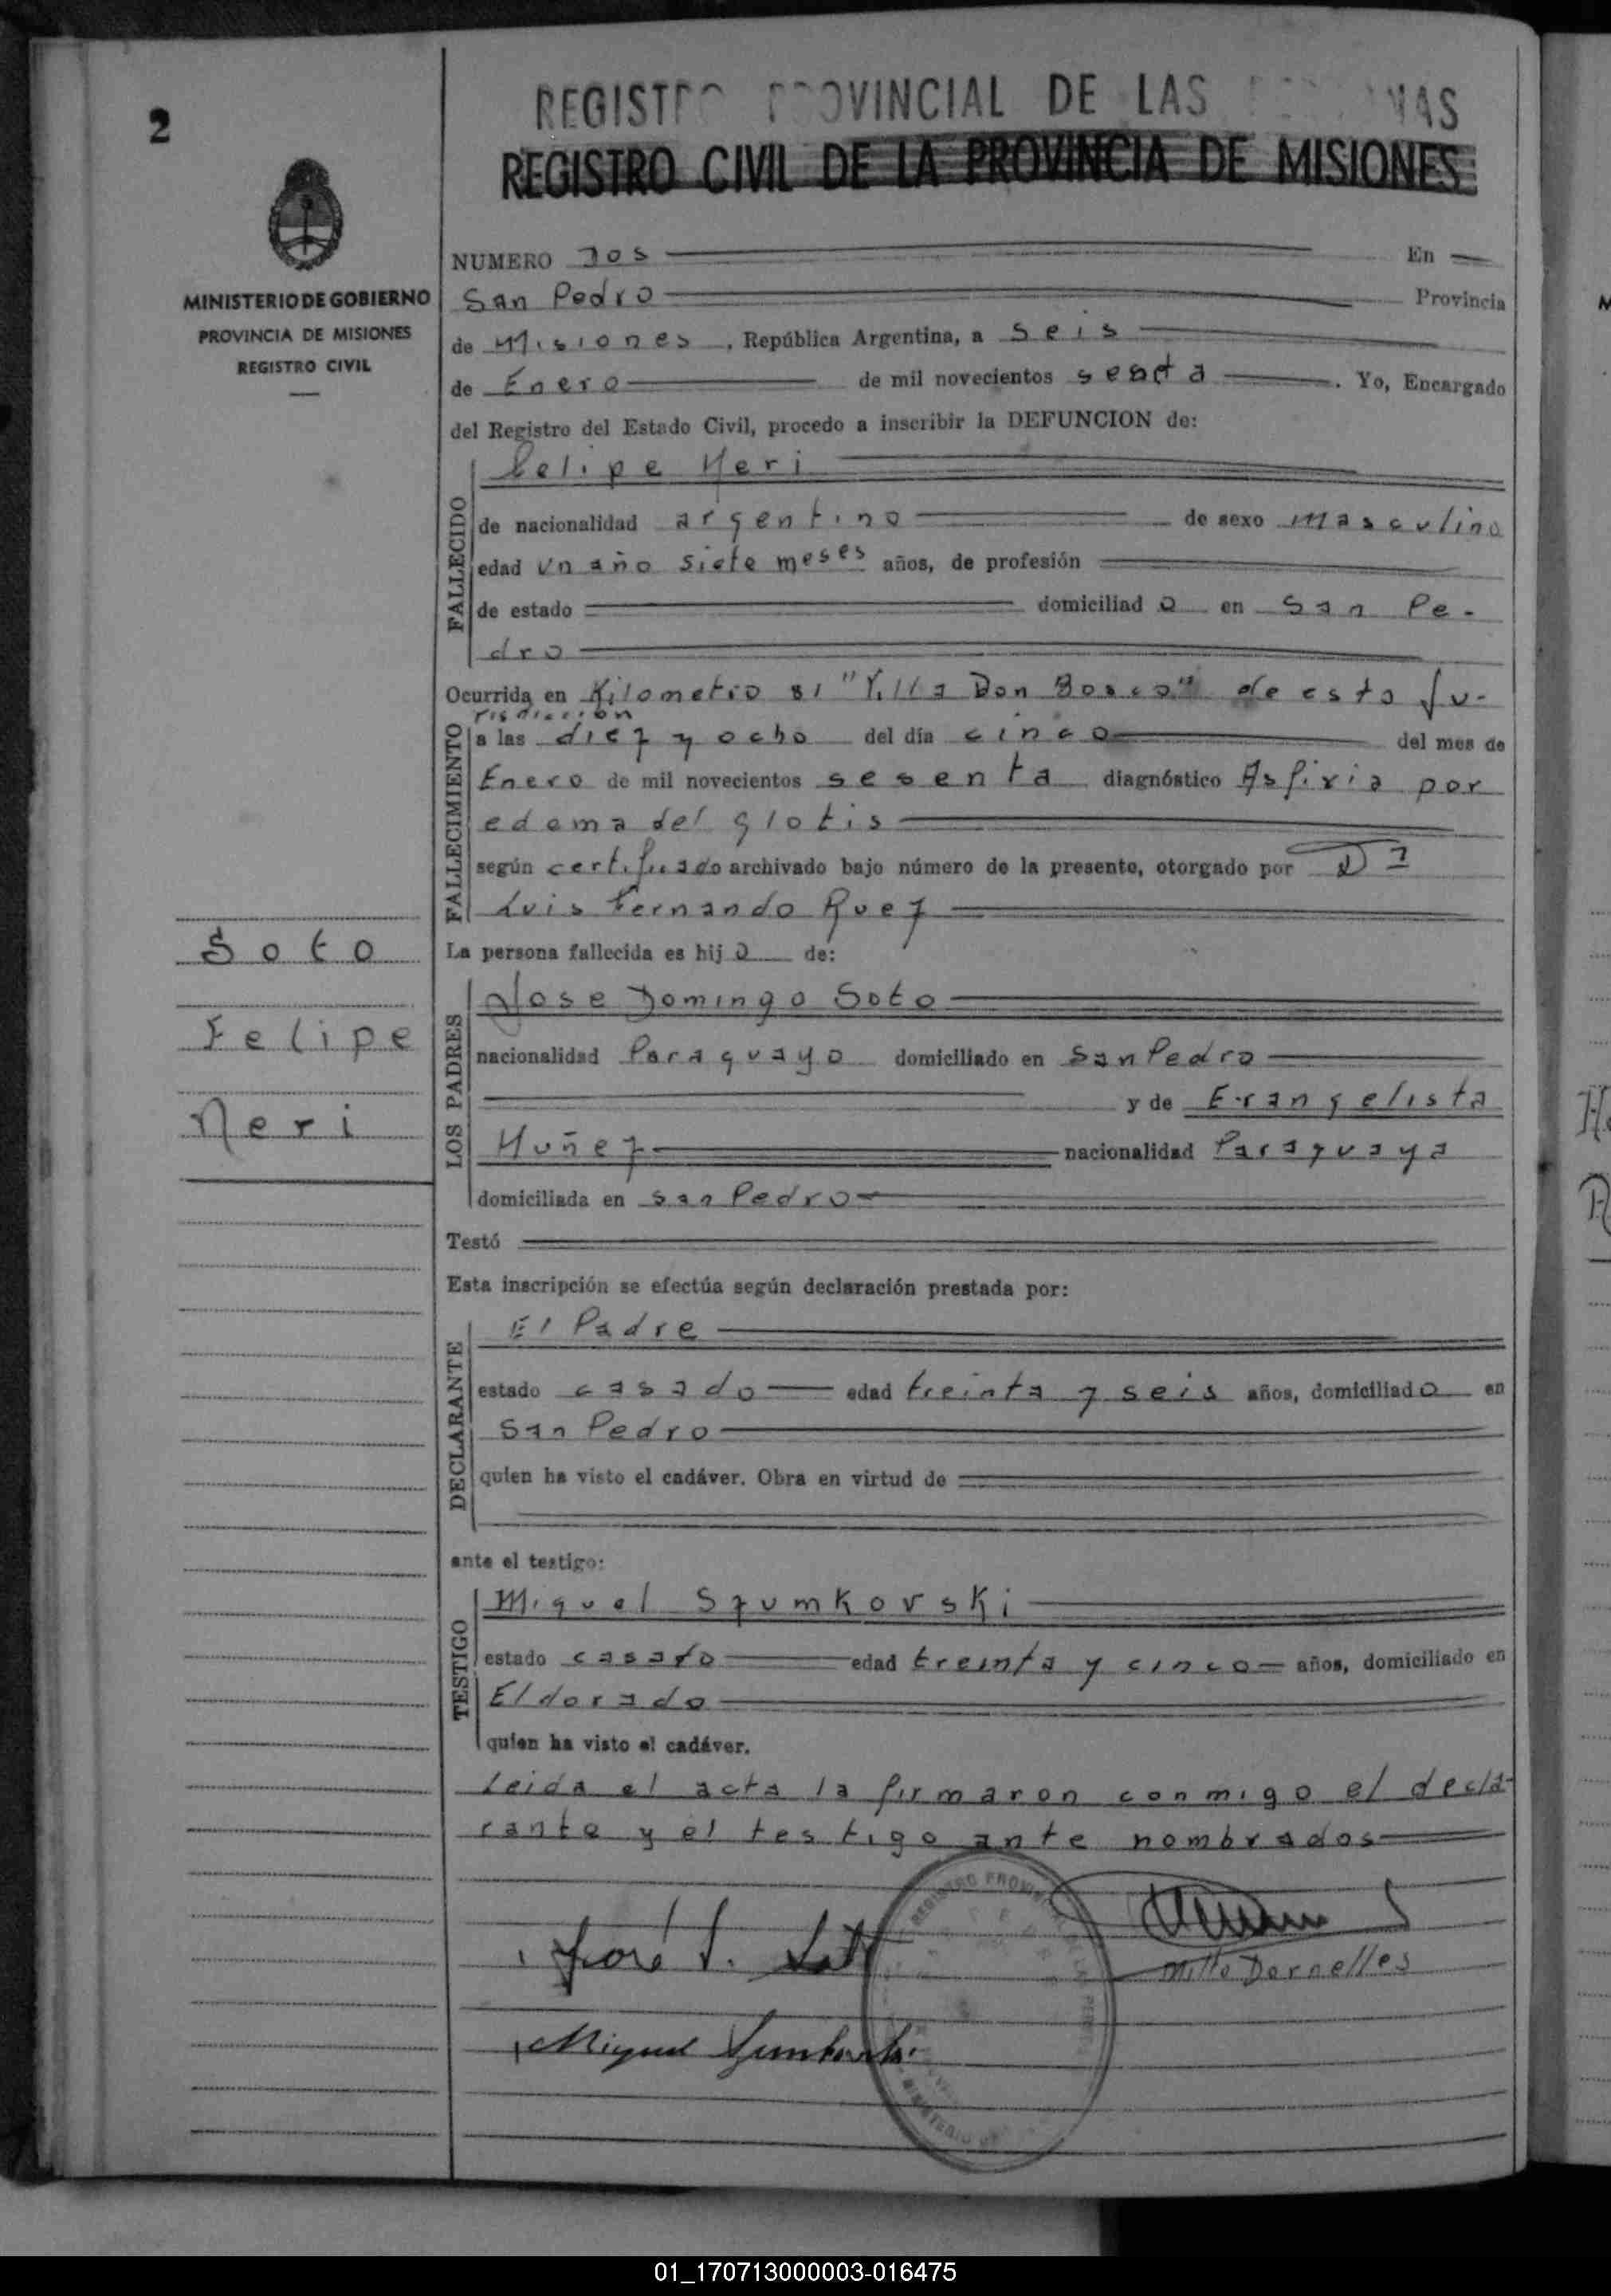 2
REGISTRO PROVINCIAL DE LAS PERSONAS
REGISTRO CIVIL DE LA PROVINCIA DE MISIONES
MINISTERIO DE GOBIERNO
PROVINCIA DE MISIONES
REGISTRO CIVIL
NUMERO Dos En
San Pedro Provincia
de Misiones, República Argentina, a Seis
de Enero de mil novecientos . Yo, Encargado
del Registro del Estado Civil, procedo a inscribir la DEFUNCION de:
FALLECIDO
Felipe Neri
de nacionalidad argentino de sexo masculino
edad un año siete meses años, de profesión
de estado domiciliado en San Pe-
dro
Ocurrida en Kilometro 81 "Villa Don Bosco" de esta Ju-
risdiccion
FALLECIMIENTO
a las diez y ocho del día cinco del mes de
Enero de mil novecientos sesenta diagnóstico Asfixia por
edema del glotis
según certificado archivado bajo número de la presente, otorgado por Dr
Luis Fernando Ruez
La persona fallecida es hijo de:
Soto
Felipe
Neri
LOS PADRES
Jose Domingo Soto
nacionalidad Paraguayo domiciliado en San Pedro
y de Evangelista
Nuñez nacionalidad Paraguaya
domiciliada en San Pedro
Testó
Esta inscripción se efectúa según declaración prestada por:
DECLARANTE
El Padre
estado casado edad treinta y seis años, domiciliado en
San Pedro
quien ha visto el cadáver. Obra en virtud de
ante el testigo:
TESTIGO
Miguel Szumkovski
estado casado edad treinta y cinco años, domiciliado en
Eldorado
quien ha visto el cadáver.
Leida el acta la firmaron conmigo el decla-
rante y el testigo ante nombrados
REGISTRO PROVINCIAL DE LA
José D. Soto
Dornelles
Miguel Szumkovski
MINISTERIO DE
01_170713000003-016475